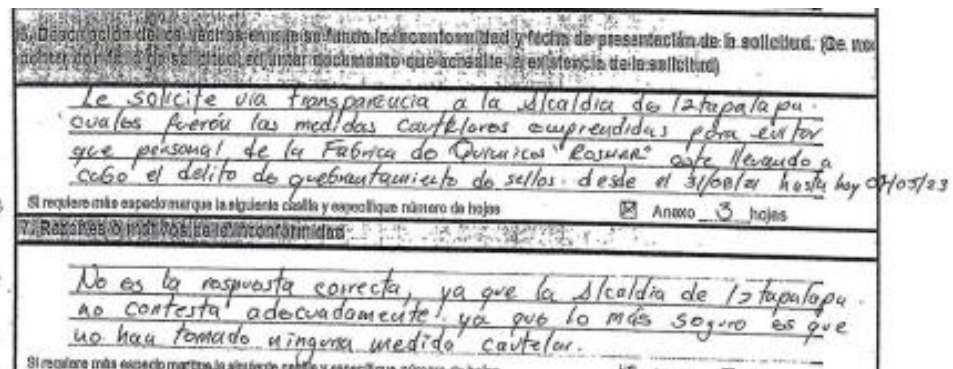 6. Descripción de los hechos en que se funda la inconformidad y fecha de presentación de la solicitud. (De no
contar con de solicitud, adjuntar documento que acredite la existencia de la solicitud)
Le solicite via transparencia a la Alcaldia de Iztapalapa.
cuales fuerón las medidas cautelares emprendidas para evitar
que personal de la Fabrica de Quimicos "ROSMAR" este llevando a
cabo el delito de quebrantamiento de sellos. desde el 31/08/21 hasta hoy 07/05/23
Si requiere más espacio marque la siguiente casilla y especifique número de hojas ☒ Anexo 3 hojas
7. Razones o motivos de la inconformidad
No es la respuesta correcta, ya que la Alcaldia de Iztapalapa.
no contesta adecuadamente! ya que lo más seguro es que
no han tomado ninguna medida cautelar.
Si requiere más espacio marque la siguiente casilla y especifique número de hojas